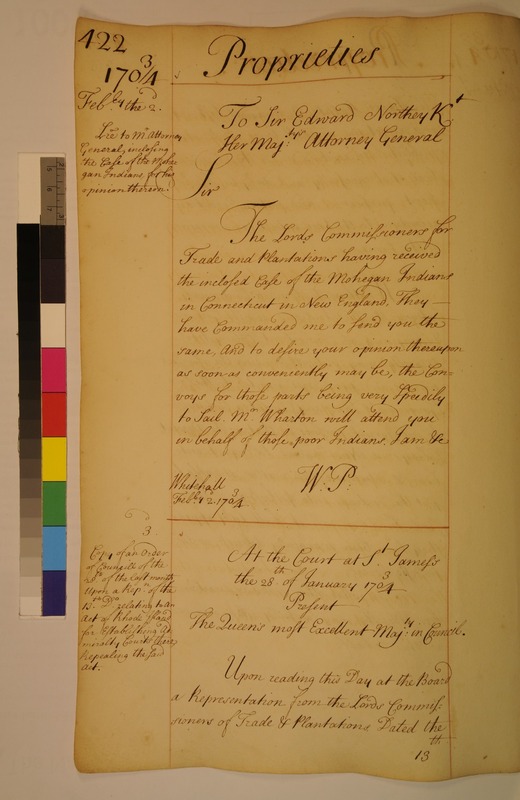 422
Proprieties
170 3/4
Feb.ry the 2.d
Lre to Mr Attorney
General, inclosing
the Case of the Mohe
gan Indians for his
opinion thereon.
To Sir Edward Northey K.t
Her Maj:tys Attorney General
Sir
The Lords Commissioners for
Trade and Plantations having received
the inclosed Case of the Mohegan Indians
in Connecticut in New England. They
have Commanded me to send you the
same, And to desire your opinion thereupon
as soon as conveniently may be, the Con=
voys for those parts being very speedily
to Sail. Mr Wharton will attend you
in behalf of those poor Indians. I am &c
W:P.
Whitehall
Feb:ry 2.d 170 3/4
3
Copy of an Order
of Council of the
28th of the last month
Upon a Rep:n of the
13.th Do relating to an
Act of Rhode Island
for Establishing Ad
miralty Courts there
Repealing the said
Act.
At the Court at S.t James's
the 28.th of January 170 3/4
Present
The Queens most Excellent Maj:ty in Council.
Upon reading this Day at the Board
a Representation from the Lords Commis=
sioners of Trade & Plantations Dated the
13th